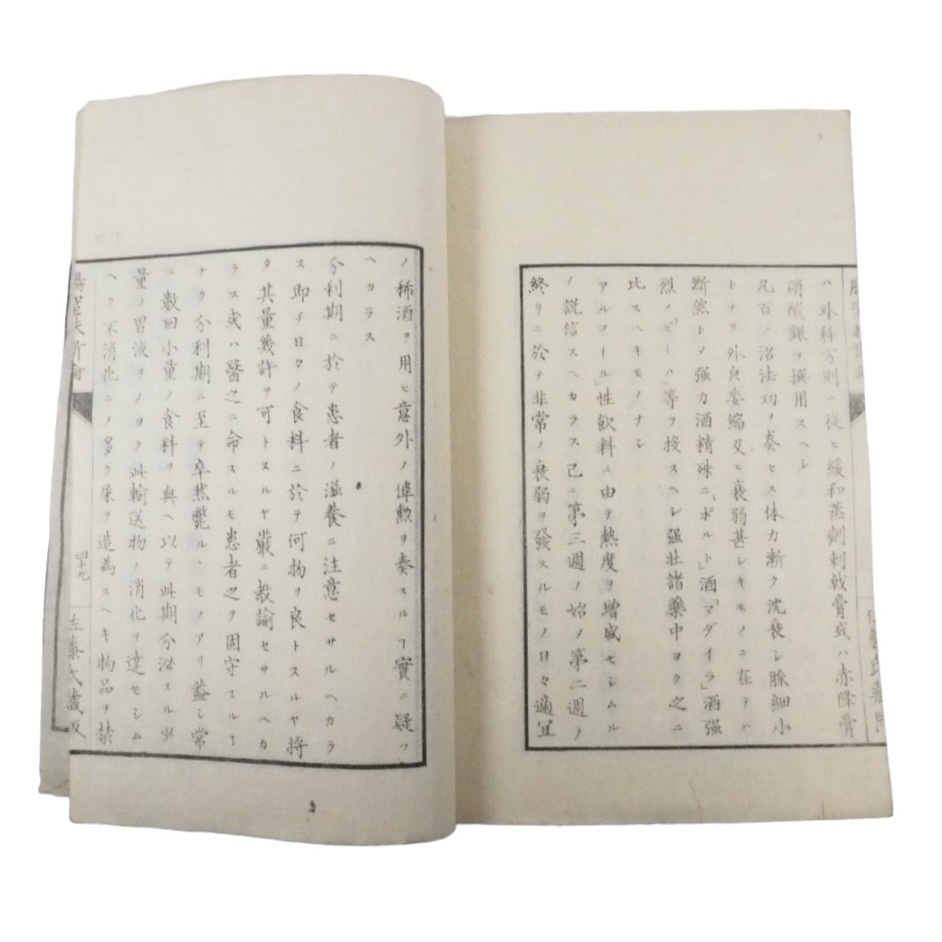 ハ外科方則ニ從ヒ緩和蒸劑刺戟膏或ハ赤降膏
硝酸銀ヲ撰用スヘシ
凡百ノ治法功ヲ奏セス体力漸ク沈衰シ脈細小
トナリ外貌委縮及ヒ衰弱甚シキモノニ在テハ
断然トメ强力酒精殊ニ「ポルト」酒「マダイラ」酒强
烈ノ等ヲ投スヘシ强壮諸藥中ヨク之ニ
比スヘキモノナシ
アルコール」性飲料ニ由テ熱度ヲ增盛セシムル
ノ説信スヘカラス已ニ第三週ノ始メ第二週ノ
終リニ於テ非常ノ衰弱ヲ發スルモノ日々適宜
ノ稀酒ヲ用ヒ意外ノ偉勲ヲ奏スルヿ實ニ疑フ
ヘカラス
分利期ニ於テ患者ノ滋養ニ注意セサルヘカラ
ス即チ日々ノ食料ニ於テ何物ヲ良トスルヤ將
タ其量幾許ヲ可トスルヤ嚴ニ教諭セサルヘカ
ラス或ハ醫之ニ命スルモ患者之ヲ固守スルヿ
ナク分利期ニ至テ卒然斃ルヽモノアリ蓋シ常
ニ數回小量ノ食料ヲ與ヘ以テ此期分泌スル少
量ノ胃液ヲメヨク此輸送物ノ消化ヲ達セシム
ヘク不消化ニメ多ク屎ヲ造為スヘキ物品ヲ禁
四十九
佐藤氏蔵版